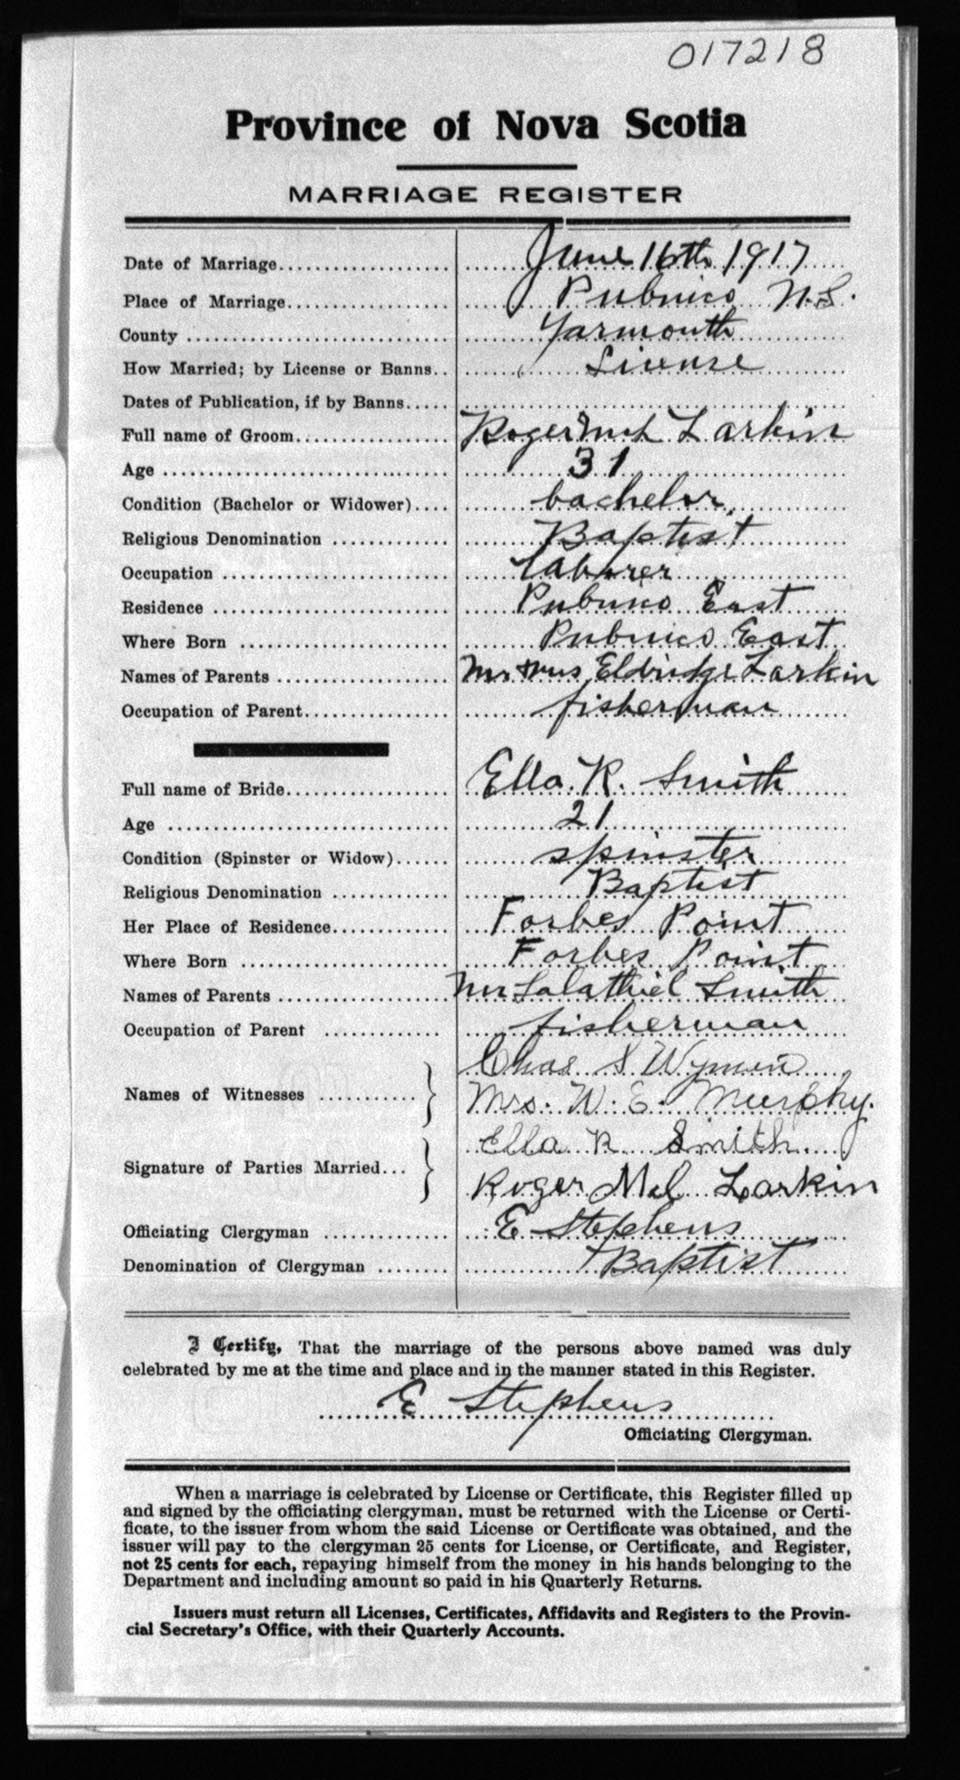 017218
Province of Nova Scotia
MARRIAGE REGISTER
Date of Marriage.................... June 16th 1917
Place of Marriage.................... Pubnico N.S.
County .................... Yarmouth
How Married; by License or Banns.. License
Dates of Publication, if by Banns.....
Full name of Groom.................... Roger Larkin
Age .................... 31
Condition (Bachelor or Widower).... bachelor
Religious Denomination .................... Baptist
Occupation .................... laborer
Residence .................... Pubnico East
Where Born .................... Pubnico East
Names of Parents .................... Mr + Mrs Eldridge Larkin
Occupation of Parent.................... fisherman
Full name of Bride.................... Ella R. Smith
Age .................... 21
Condition (Spinster or Widow)...... spinster
Religious Denomination .................... Baptist
Her Place of Residence.................... Forbes Point
Where Born .................... Forbes Point
Names of Parents .................... Mr Salathiel Smith
Occupation of Parent .................... fisherman
Chas S Wyman
Names of Witnesses ...........
Mrs. W. E. Murphy.
Ella R Smith
Signature of Parties Married...
Roger Mel Larkin
Officiating Clergyman .................... E Stephens
Denomination of Clergyman ........ Baptist
I Certify, That the marriage of the persons above named was duly
celebrated by me at the time and place and in the manner stated in this Register.
E Stephens
Officiating Clergyman.
When a marriage is celebrated by License or Certificate, this Register filled up
and signed by the officiating clergyman, must be returned with the License or Certi-
ficate, to the issuer from whom the said License or Certificate was obtained, and the
issuer will pay to the clergyman 25 cents for License, or Certificate, and Register,
not 25 cents for each, repaying himself from the money in his hands belonging to the
Department and including amount so paid in his Quarterly Returns.
Issuers must return all Licenses, Certificates, Affidavits and Registers to the Provin-
cial Secretary's Office, with their Quarterly Accounts.